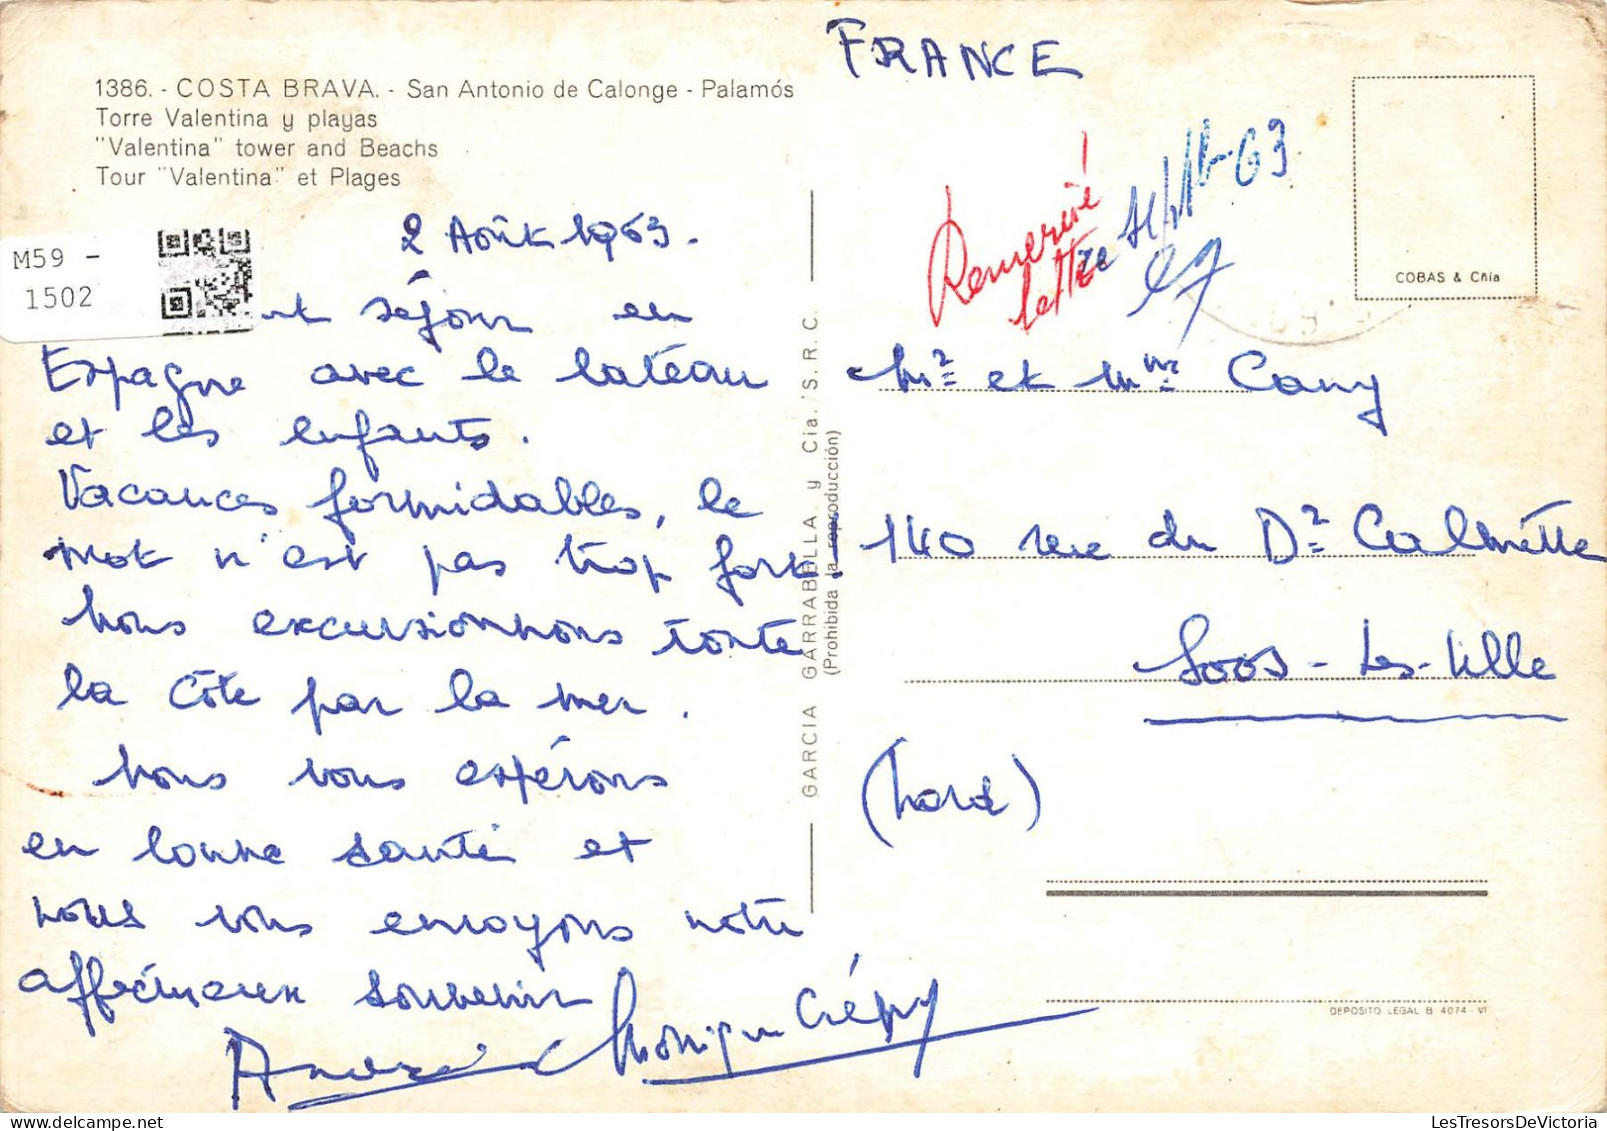 1386. - COSTA BRAVA. - San Antonio de Calonge - Palamós
Torre Valentina y playas
"Valentina" tower and Beachs
Tour "Valentina" et Plages
M59 -
1502
2 Août 1963.
séjour en
Espagne avec le bateau
et les enfants.
Vacances formidables, le
mot n'est pas trop fort!
Nous excursionnons toute
la Côte par la mer.
Nous vous espérons
en bonne santé et
nous vous envoyons notre
affectueux souvenir
André Monique Crépy
GARCIA GARRABELLA y Cia. 'S.R.C.
(Prohibida la reproducción)
FRANCE
Remercié
lettre
63
COBAS & Cñia
Mr et Mme Cany
140 rue du Dr Calmette
Loos-Les-Lille
(Nord)
DEPOSITO LEGAL B 4074 - VI
LesTresorsDeVictoria